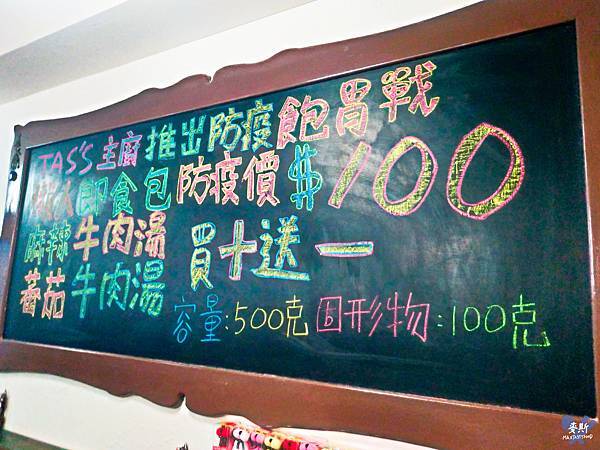 TAS'S主廚推出防疫飽胃戰
即食包防疫價$100
麻辣牛肉湯
蕃茄牛肉湯
買十送一
容量:500克固形物:100克
麥斯